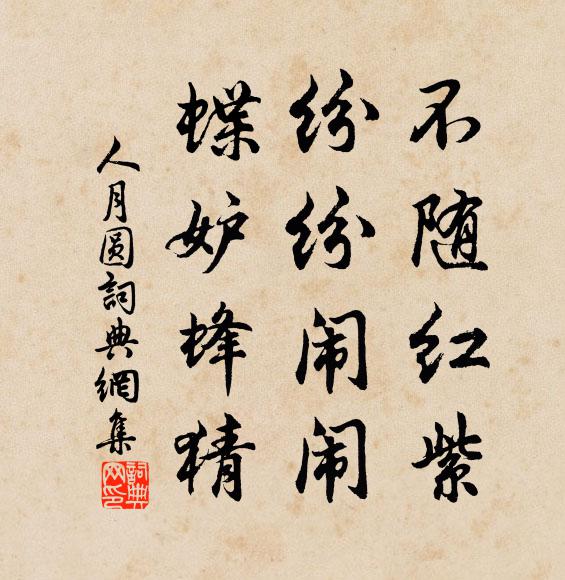 不随红紫
纷纷闹闹
蝶妒蜂猜
人月圆詞典網集
詞典网印